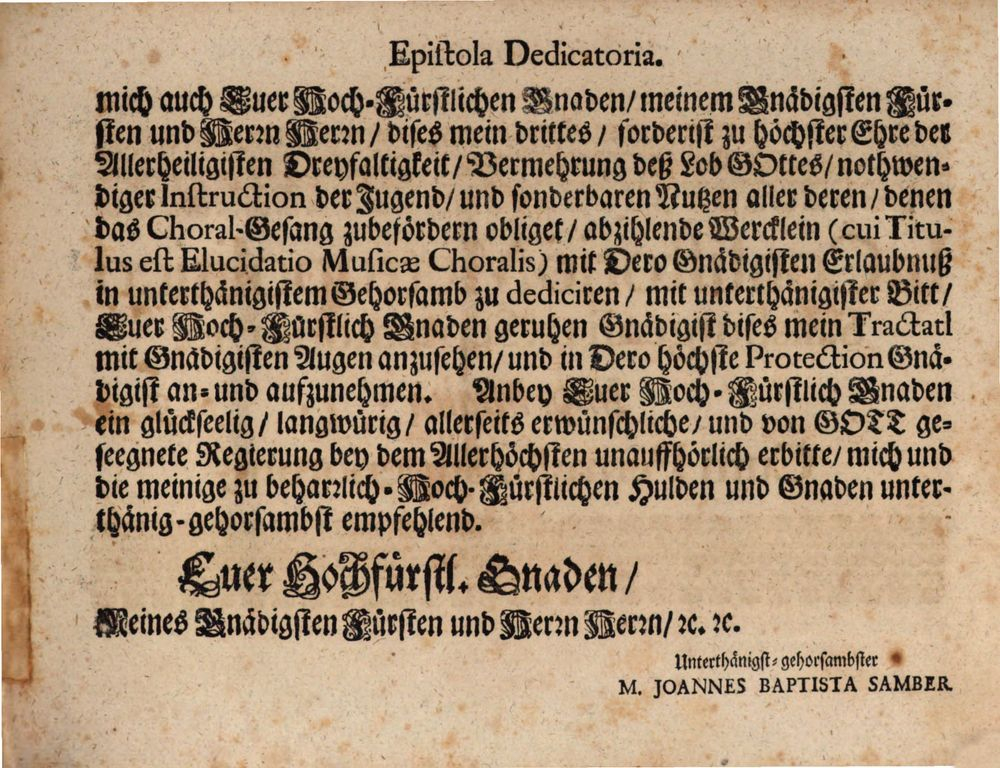 Epistola Dedicatoria.
mich auch Euer Hoch-Fürstlichen Gnaden/ meinem Gnädigsten Für-
sten und Herrn Herrn/ dises mein drittes/ forderist zu höchster Ehre der
Allerheiligisten Dreyfaltigkeit/ Vermehrung deß Lob GOttes/ nothwen-
diger Instruction der Jugend/ und sonderbaren Nutzen aller deren/ denen
das Choral-Gesang zubefördern obliget/ abzihlende Wercklein (cui Titu-
lus est Elucidatio Musicæ Choralis) mit Dero Gnädigisten Erlaubnuß
in unterthänigistem Gehorsamb zu dediciren/ mit unterthänigister Bitt/
Euer Hoch-Fürstlich Gnaden geruhen Gnädigist dises mein Tractatl
mit Gnädigisten Augen anzusehen/ und in Dero höchste Protection Gnä-
digist an- und aufzunehmen. Anbey Euer Hoch-Fürstlich Gnaden
ein glückseelig/ langwürig/ allerseits erwünschliche/ und von GOTT ge-
seegnete Regierung bey dem Allerhöchsten unauffhörlich erbitte/ mich und
die meinige zu beharrlich-Hoch-Fürstlichen Hulden und Gnaden unter-
thänig-gehorsambst empfehlend.
Euer Hochfürstl. Gnaden/
Meines Gnädigsten Fürsten und Herrn Herrn/ ꝛc. ꝛc.
Unterthänigst-gehorsambster
M. JOANNES BAPTISTA SAMBER.